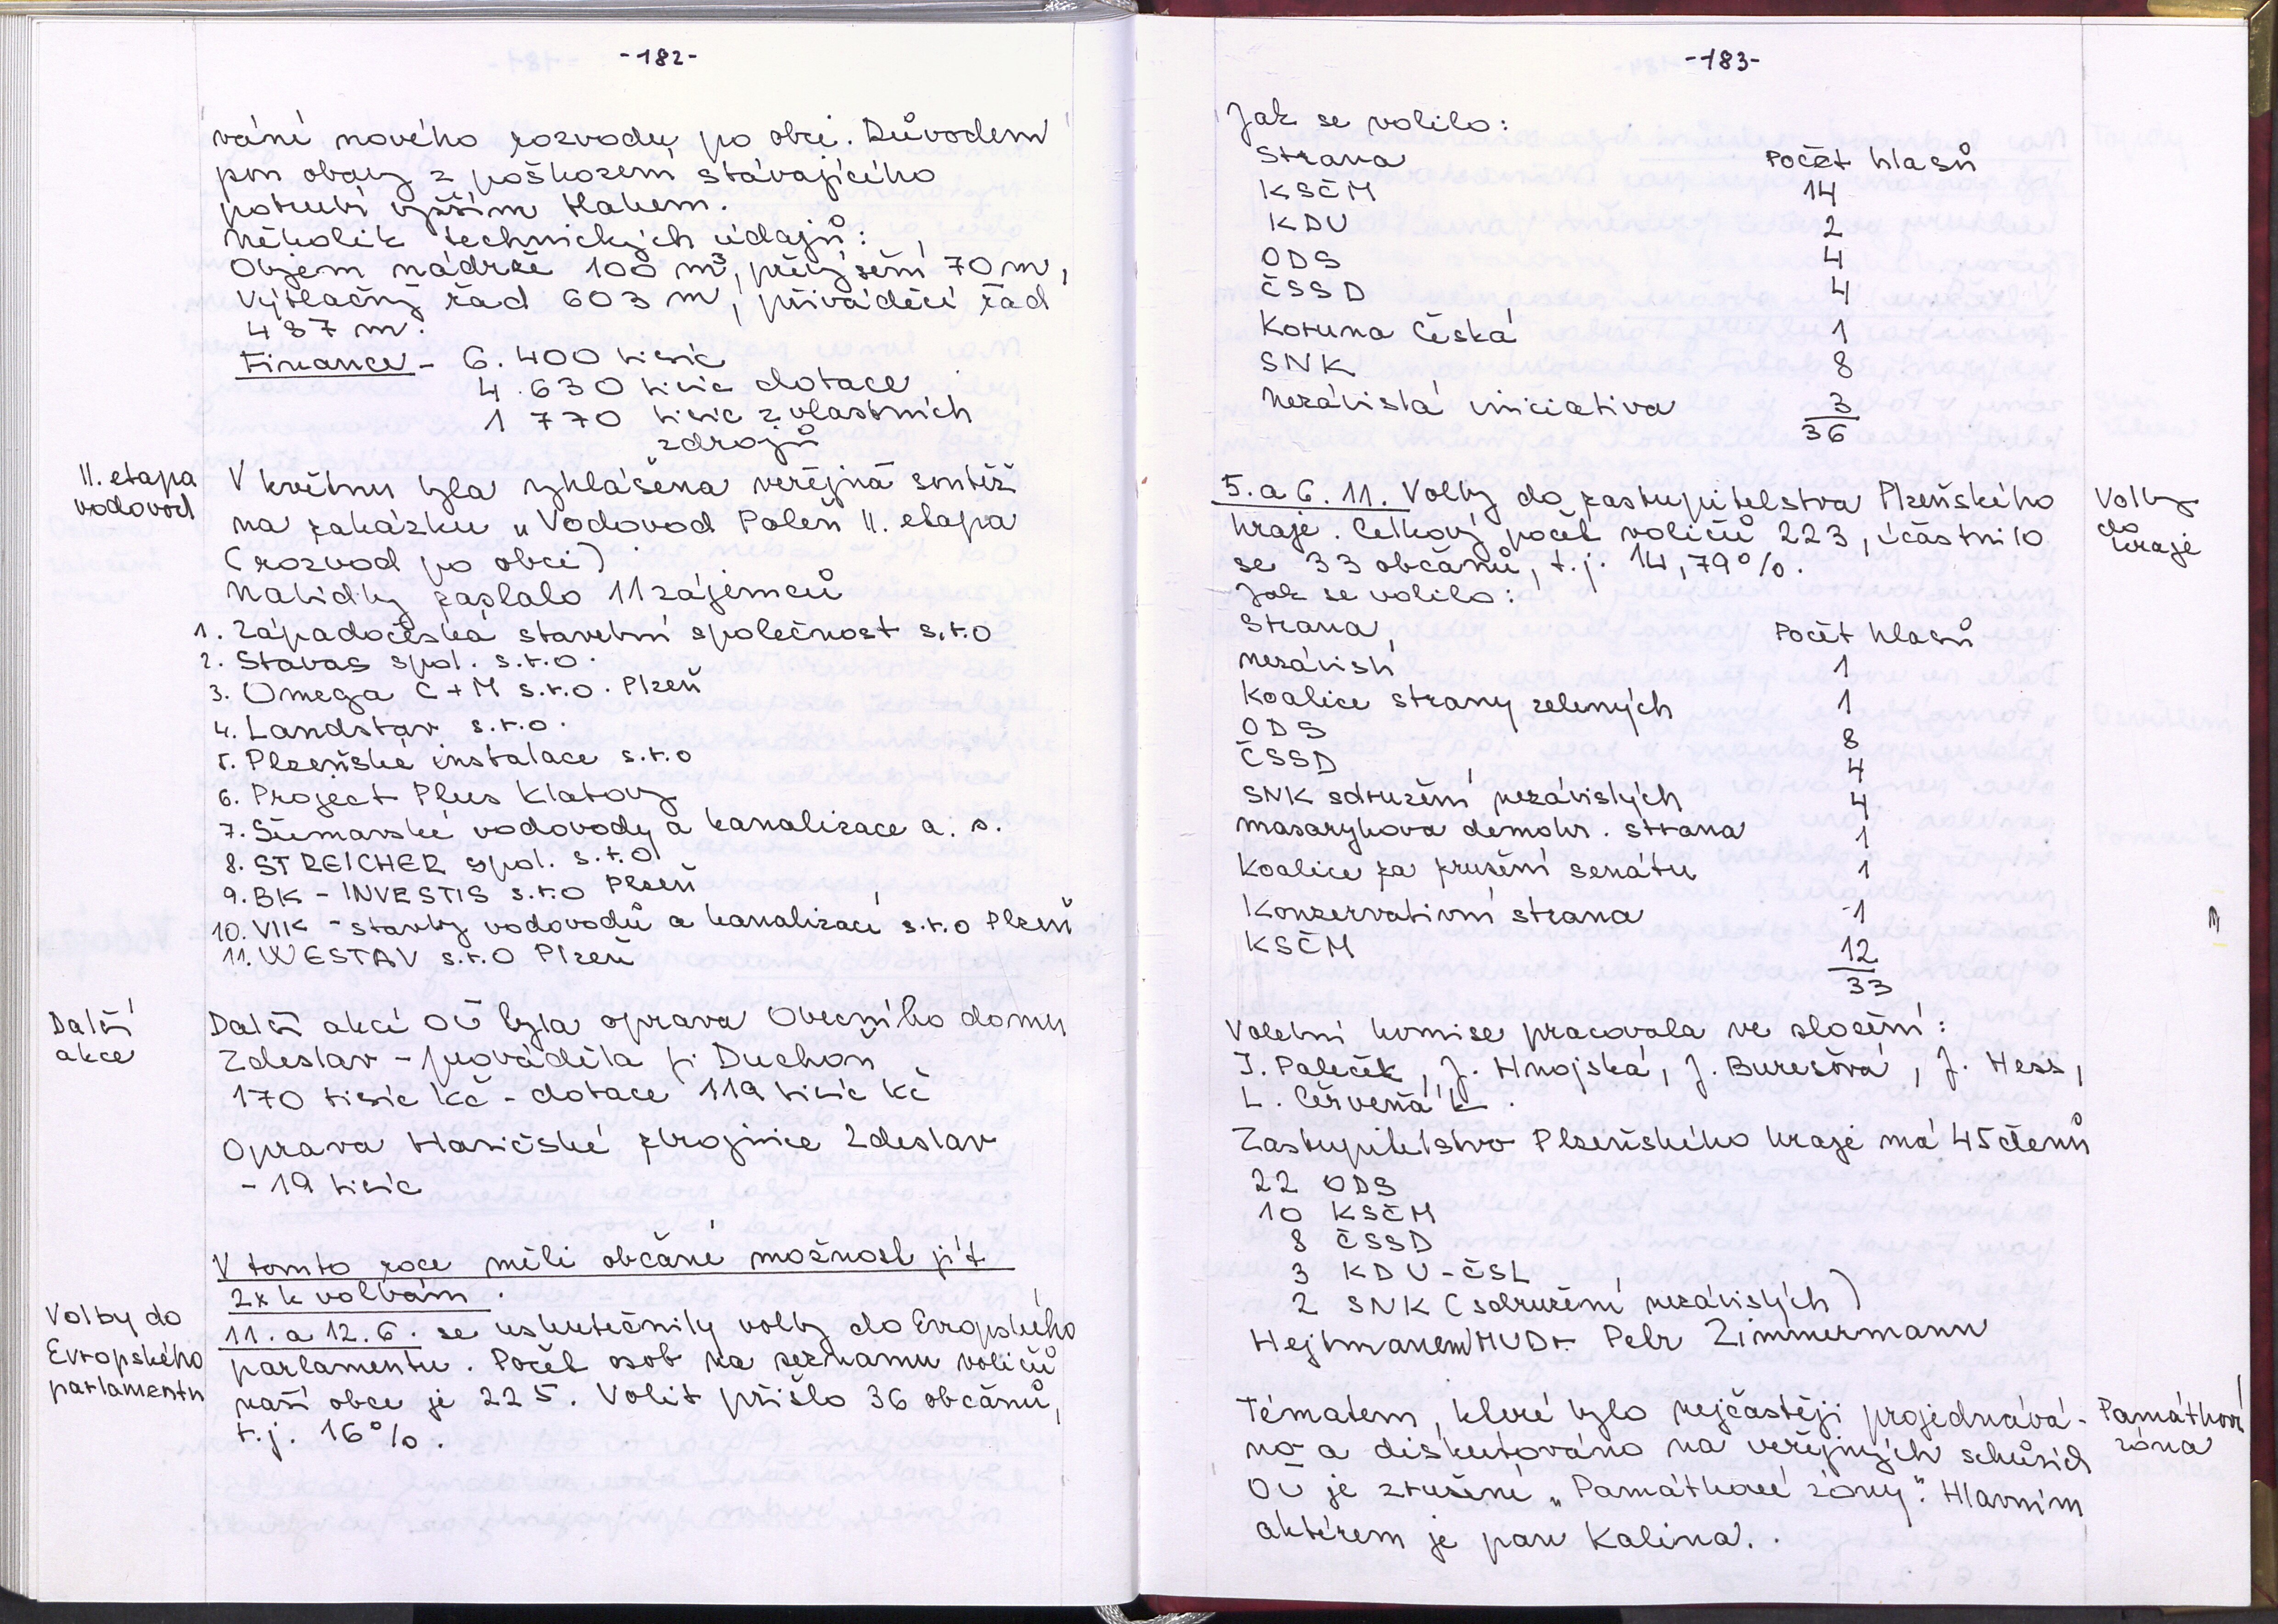 -182-
vání nového rozvodu po obci. Důvodem
jsou obavy z poškození stávajícího
potrubí vyšším tlakem.
Několik technických údajů:
Objem nádrže 100 m³, převýšení 70 m,
Výtlačný řad 603 m, přiváděcí řad
487 m.
Finance - 6. 400 tisíc
4. 630 tisíc dotace
1 770 tisíc z vlastních
zdrojů
II. etapa
vodovod
V květnu byla vyhlášena veřejná soutěž
na zakázku „Vodovod Poleň II. etapa
(rozvod po obci)
Nabídky zaslalo 11 zájemců
1. Západočeská stavební společnost s.r.o
2. Stavas spol. s.r.o.
3. Omega C+M s.r.o. Plzeň
4. Landstav s.r.o.
5. Plzeňské instalace s.r.o
6. Project Plus Klatovy
7. Šumavské vodovody a kanalizace a. s.
8. STREICHER spol. s.r.o
9. BK - INVESTIS s.r.o Plzeň
10. VIIK - stavby vodovodů a kanalizací s.r.o Plzeň
11. WESTAV s.r.o Plzeň
Další
akce
Další akcí OÚ byla oprava Obecního domu
Zdeslav - prováděla fi Duchoň
170 tisíc Kč - dotace 119 tisíc Kč
Oprava Hasičské zbrojnice Zdeslav
- 19 tisíc
V tomto roce měli občané možnost jít
2x k volbám.
Volby do
Evropského
parlamentu
11. a 12. 6. se uskutečnily volby do Evropského
parlamentu. Počet osob na seznamu voličů
naší obce je 225. Volit přišlo 36 občanů,
t.j. 16%.
-183-
Jak se volilo:
Strana Počet hlasů
KSČM 14
KDU 2
ODS 4
ČSSD 4
Koruna Česká 1
SNK 8
Nezávislá iniciativa 3
36
5. a 6. 11. Volby do zastupitelstva Plzeňského
kraje. Celkový počet voličů 223, účastnilo
se 33 občanů, t.j. 14,79%.
Volby
do
kraje
Jak se volilo:
Strana Počet hlasů
nezávislí 1
Koalice strany zelených 1
ODS 8
ČSSD 4
SNK sdružení nezávislých 4
Masarykova demokr. strana 1
Koalice za zrušení senátu 1
Konzervativní strana 1
KSČM 12
33
Volební komise pracovala ve složení:
J. Paleček, J. Hnojská, J. Burešová, J. Hess,
L. Červeňák.
Zastupitelstvo Plzeňského kraje má 45 členů
22 ODS
10 KSČM
8 ČSSD
3 KDU-ČSL
2 SNK (sdružení nezávislých)
Hejtmanem MUDr. Petr Zimmermann
Tématem, které bylo nejčastěji projednává-
no a diskutováno na veřejných schůzích
OÚ je zrušení „Památkové zóny". Hlavním
aktérem je pan Kalina.
Památková
zóna